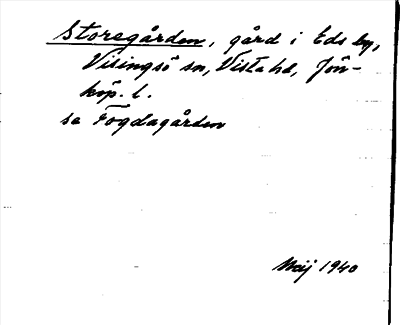 Storegården, gård i Eds by,
Visingsö sn, Vista hd, Jön-
köp. l.
se Fogdagården
Maj 1940